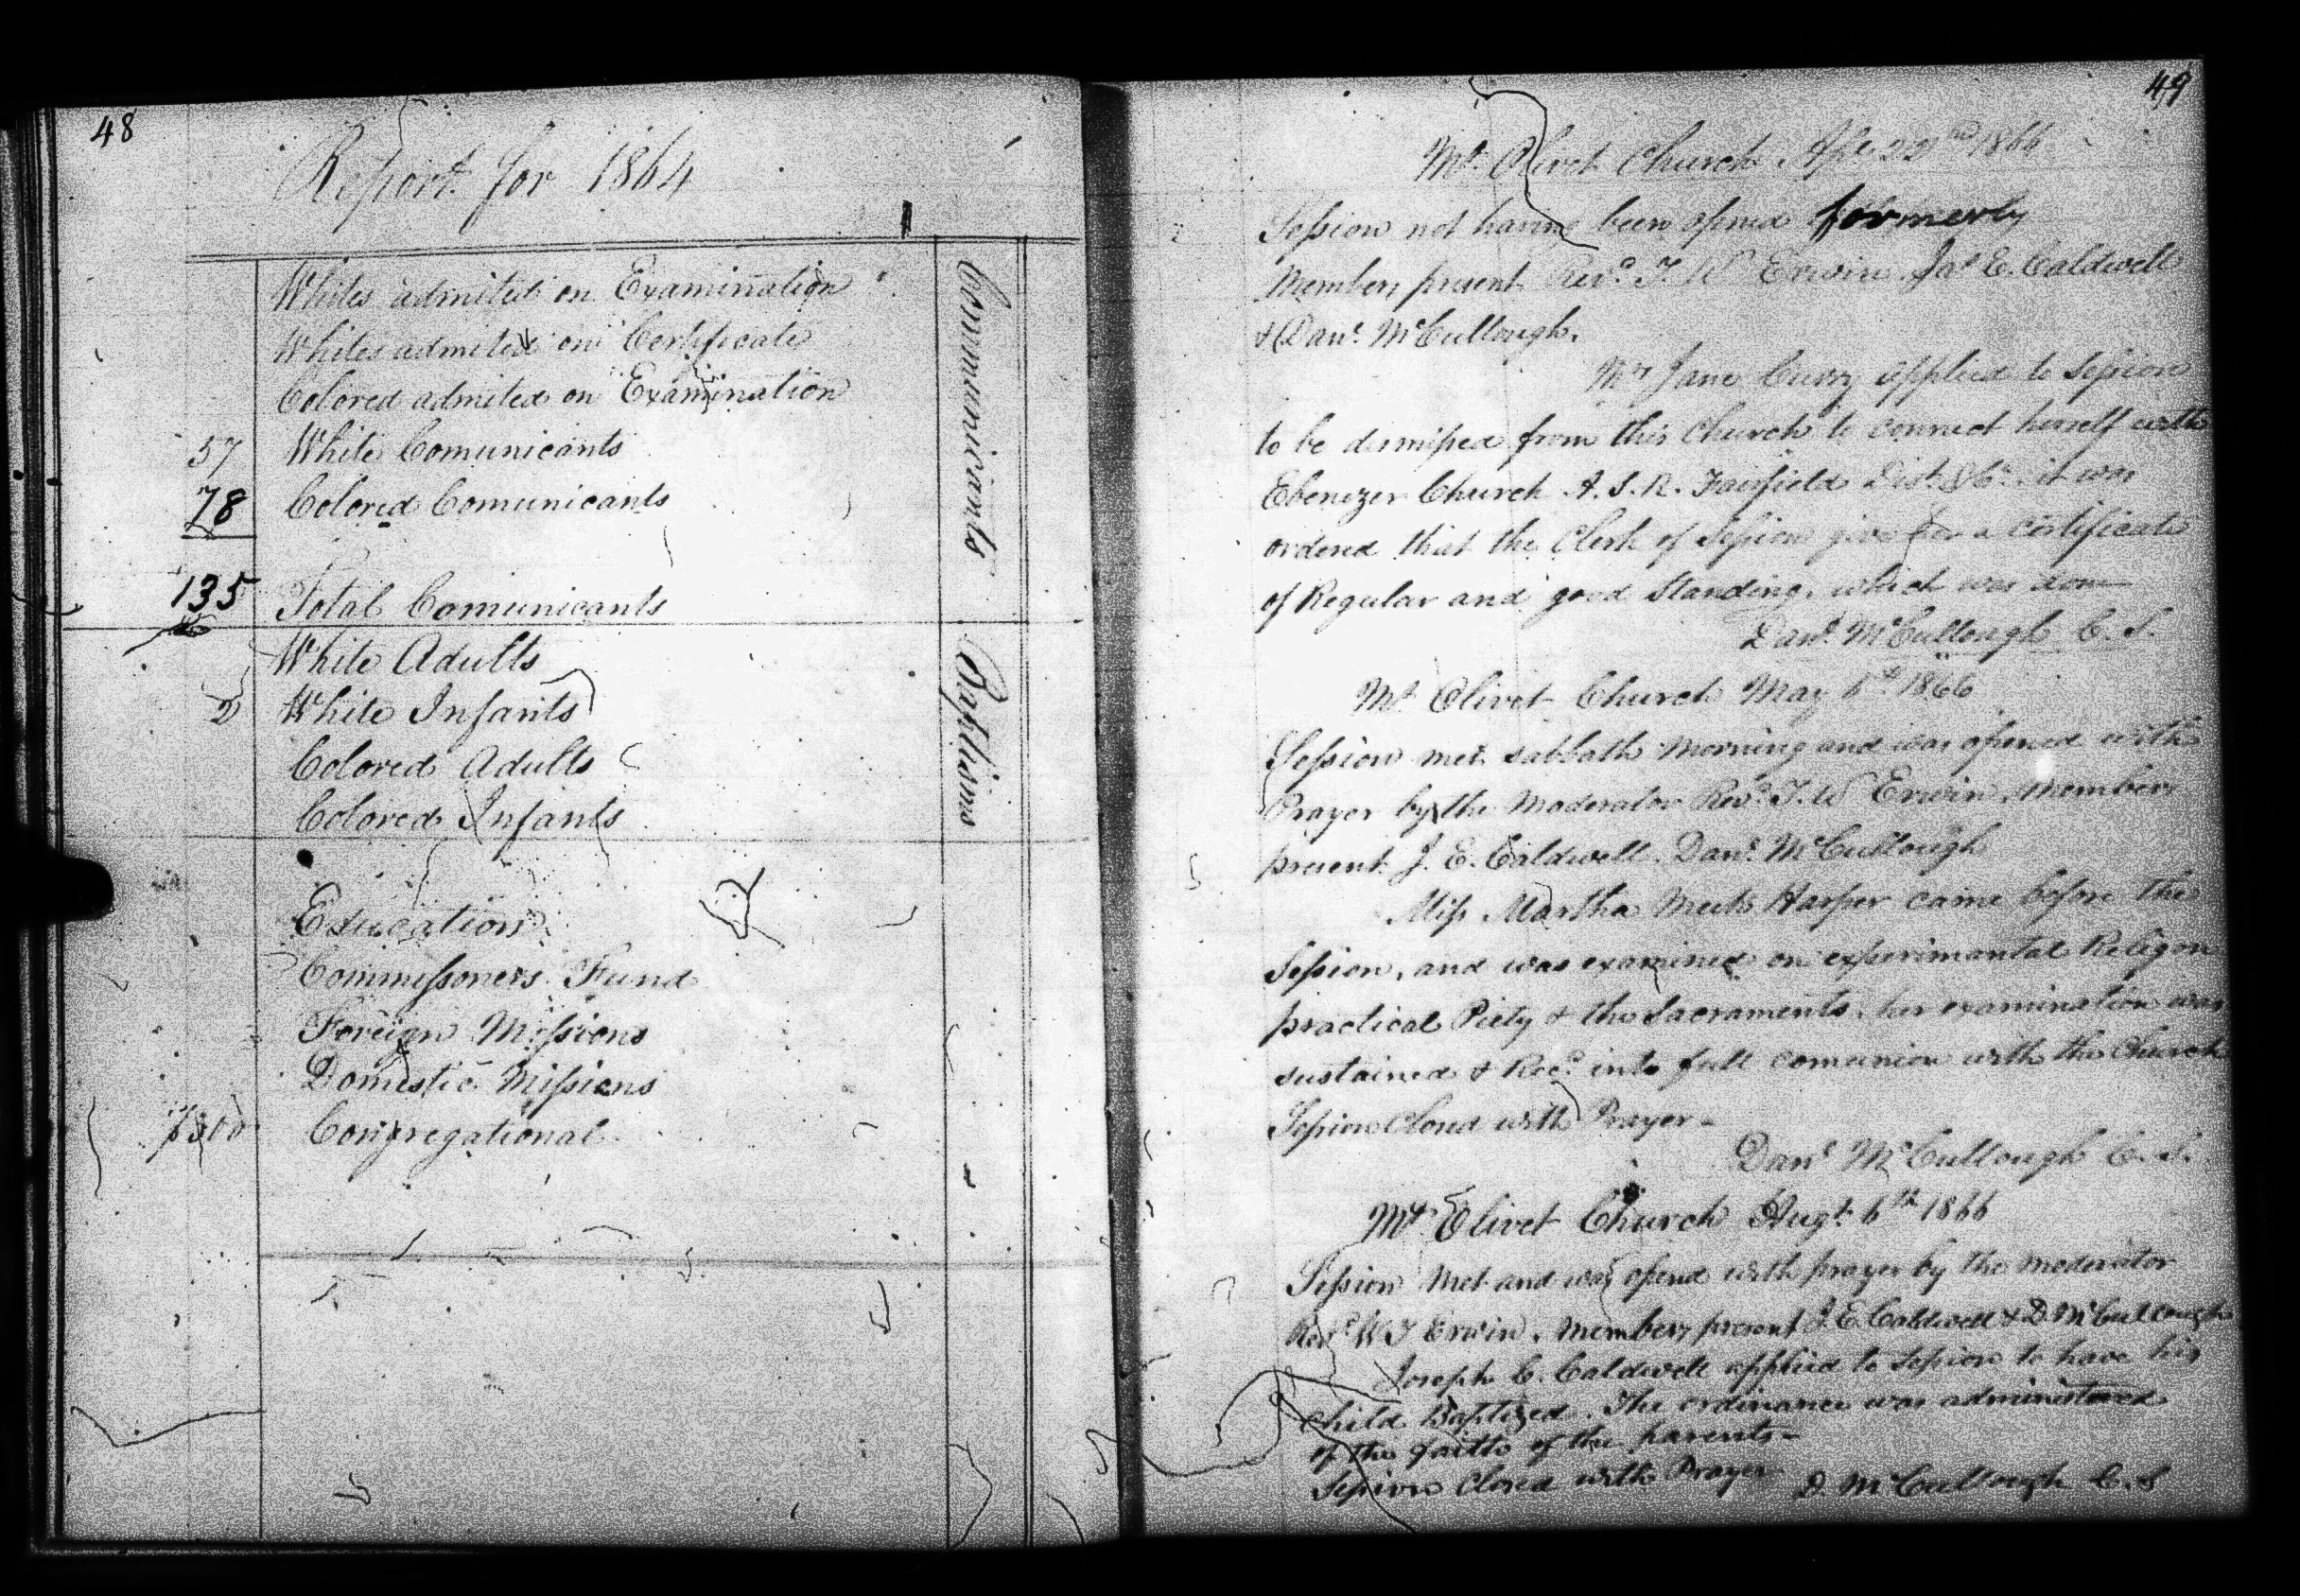 48
Report for 1864
Whites admited on Examination
Whites admited on Certificate
Colored admited on Examination
57 White Comunicants
78 Colored Comunicants
135 Total Comunicants
Communicants
White Adults
2 White Infants
Colored Adults
Colored Infants
Baptisms
Education
Commissoners Fund
Foreign Missions
Domestic Missions
Congregational
49
Mt. Olivet Church Apl. 22nd 1866
Session not having been opened formerly
Members present Revd. T. W Erwin Jas E. Caldwell
& Danl. McCullough.
Mrs Jane Curry applied to Session
to be dismissed from this Church to connect herself with
Ebenezer Church A. S. R. Fairfield Dist. it was
ordered that the Clerk of Session give her a certificate
of Regular and good Standing, which was done
Danl. McCullough C. S.
Mt. Olivet Church May 6th 1866
Session met sabbath morning and was opened with
Prayer by the Moderator Revd. T. W Erwin, members
present J. E. Caldwell. Danl. McCullough
Miss Martha Harper came before the
Session, and was examined on experimantal Religon
practical Piety & the Sacraments, her examination was
sustained & Recd. into full comunion with the Church
Session Closed with Prayer -
Danl McCullough C. S.
Mt. Olivet Church Augt. 6th 1866
Session Met and was opend with prayer by the moderator
Revd W T Erwin, members present J. E. Caldwell & D. McCullough
Joseph C. Caldwell applied to Session to have his
child Baptized. The ordinance was administered
of the faith of the parents -
Session Closed with Prayer
D. McCullough C. S